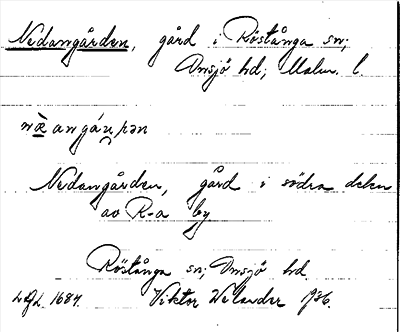 Nedangården, gård i Röstånga sn;
Onsjö hd; Malm. l.
Nedangården, gård i södra delen
av R-a by
Röstånga sn; Onsjö hd.
L.G.L. 1684. Viktor Welander 1936.